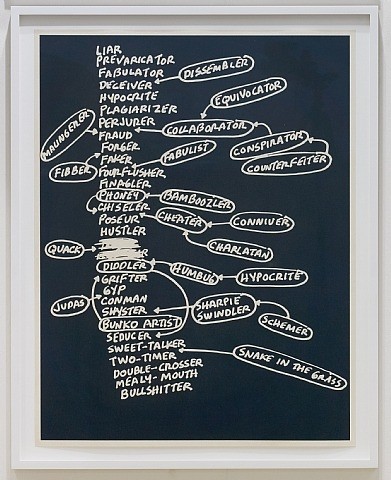 LIAR
PREVARICATOR
FABULATOR
DISSEMBLER
DECEIVER
HYPOCRITE
EQUIVOCATOR
PLAGIARIZER
PERJURER
MALINGERER
FRAUD
COLLABORATOR
FORGER
CONSPIRATOR
FAKER
FABULIST
COUNTERFEITER
FIBBER
FOURFLUSHER
FINAGLER
PHONEY
BAMBOOZLER
CHISELER
POSEUR
CHEATER
CONNIVER
HUSTLER
CHARLATAN
QUACK
DIDDLER
HUMBUG
HYPOCRITE
GRIFTER
GYP
JUDAS
CONMAN
SHARPIE
SHYSTER
SWINDLER
BUNKO ARTIST
SCHEMER
SEDUCER
SWEET-TALKER
SNAKE IN THE GRASS
TWO-TIMER
DOUBLE-CROSSER
MEALY-MOUTH
BULLSHITTER